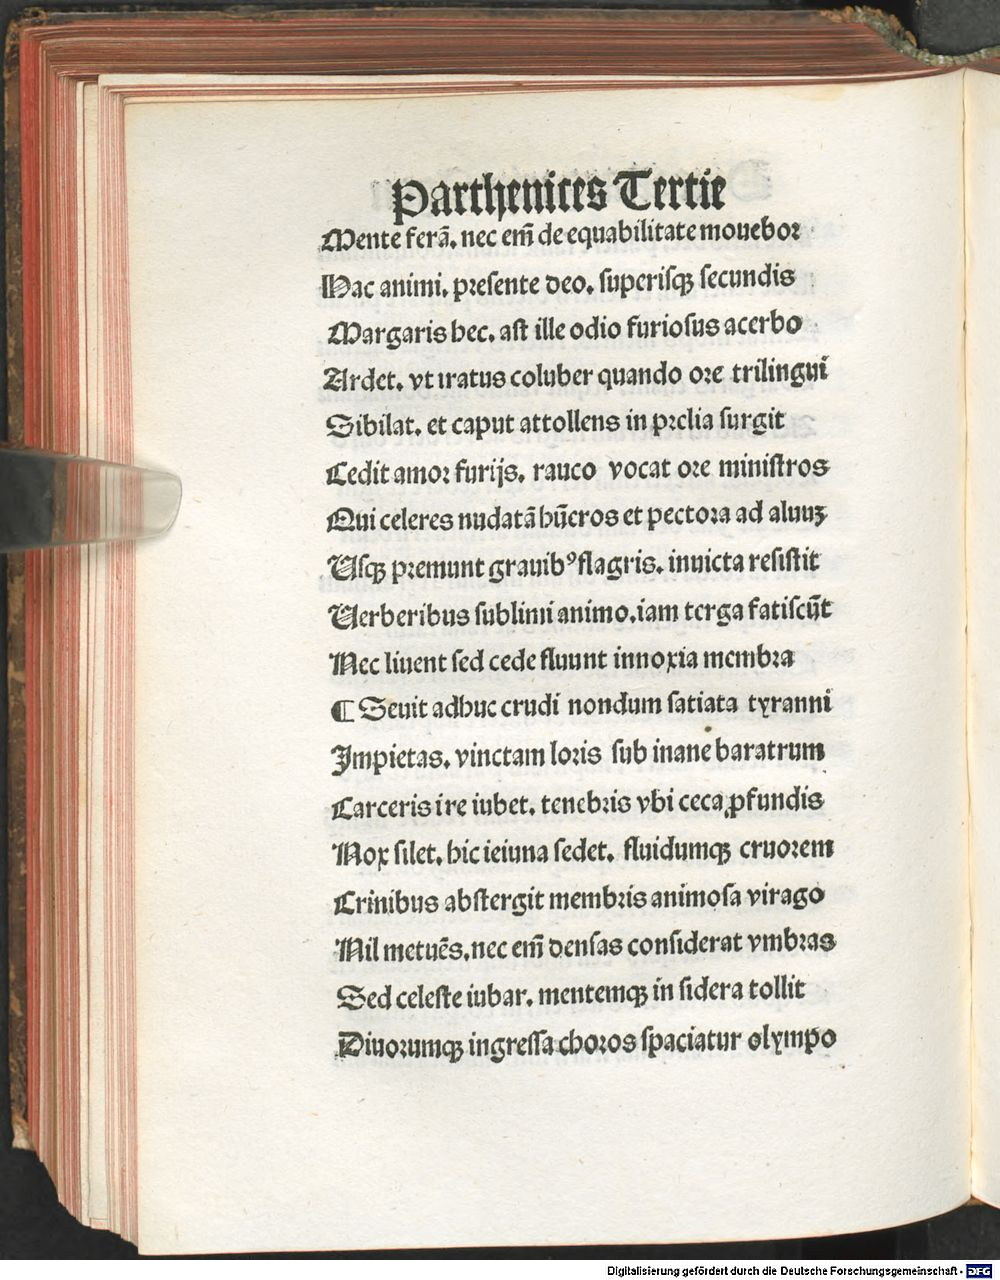 Parthenices Tertie
Mente ferā. nec em̄ de equabilitate mouebor
Hac animi. presente deo. superisqꝫ secundis
Margaris hec. ast ille odio furiosus acerbo
Ardet. vt iratus coluber quando ore trilingui
Sibilat. et caput attollens in prelia surgit
Cedit amor furijs. rauco vocat ore ministros
Qui celeres nudatā hūeros et pectora ad aluuꝫ
Usqꝫ premunt grauibꝰ flagris. inuicta resistit
Uerberibus sublimi animo. iam terga fatiscūt
Nec liuent sed cede fluunt innoxia membra
¶ Seuit adhuc crudi nondum satiata tyranni
Impietas. vinctam loris sub inane baratrum
Carceris ire iubet. tenebris vbi ceca ꝓfundis
Nox silet. hic ieiuna sedet. fluidumqꝫ cruorem
Crinibus abstergit membris animosa virago
Nil metuēs. nec em̄ densas considerat vmbras
Sed celeste iubar. mentemqꝫ in sidera tollit
Diuorumqꝫ ingressa choros spaciatur olympo
Digitalisierung gefördert durch die Deutsche Forschungsgemeinschaft - DFG